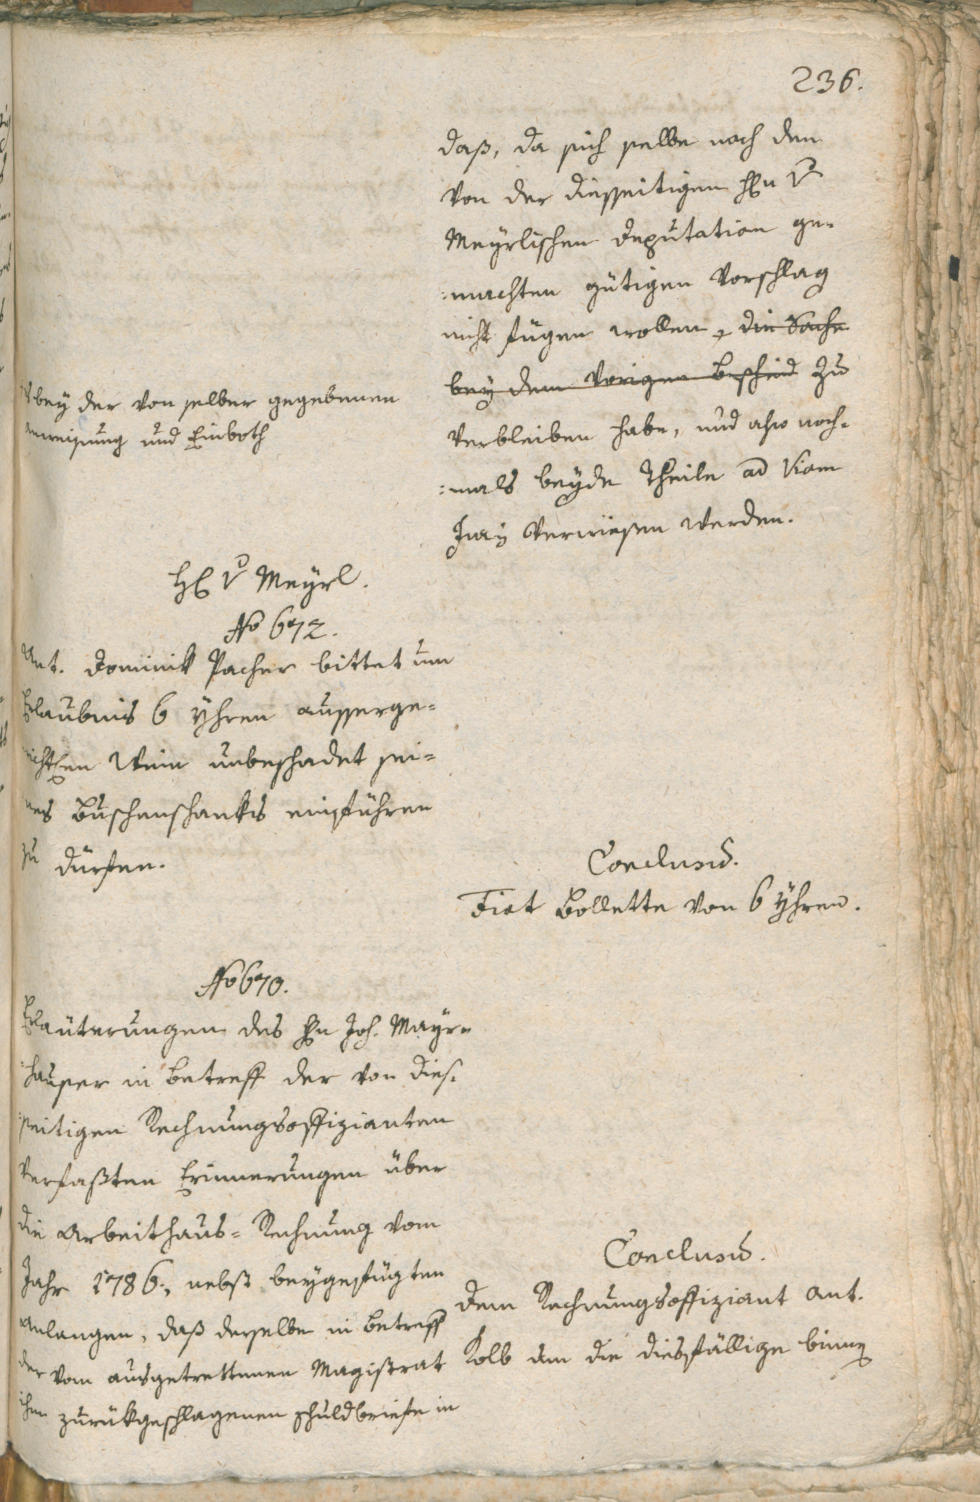 236.
daß, da sich selbe nach den
von der diesseitigen Hℓn v
Meyrlischen Deputation ge-
:machten gütigen Vorschlag
nicht fügen wollen, die Sache
bey dem vorigen Bescheid zu
verbleiben habe, und also noch-
:mals beyde Theile ad Viam
Juris verwiesen werden.
bey der von selber gegebenen
und Einboth
H v Meyrl.
No 672.
Ant. Dominik Pacher bittet um
Erlaubnis 6 Yhren ausserge-
Wein unbeschadet sei-
nes Buschenschanks einführen
zu dürfen.
Conclusum.
Fiat Bollette von 6 Yhren.
No 670.
Erläuterungen des Hn Joh. Mayr-
:hauser in Betreff der von dies-
:seitigen Rechnungsoffizianten
verfaßten Erinnerungen über
die Arbeithaus-Rechnung vom
Jahr 1786., nebst beygefügten
Anlangen, daß derselbe in Betreff
der vom ausgetrettenen Magistrat
ihm zurükgeschlagenen Schuldbriefe in
Conclusum.
Dem Rechnungsoffiziant Ant.
Kolb um die diesfällige